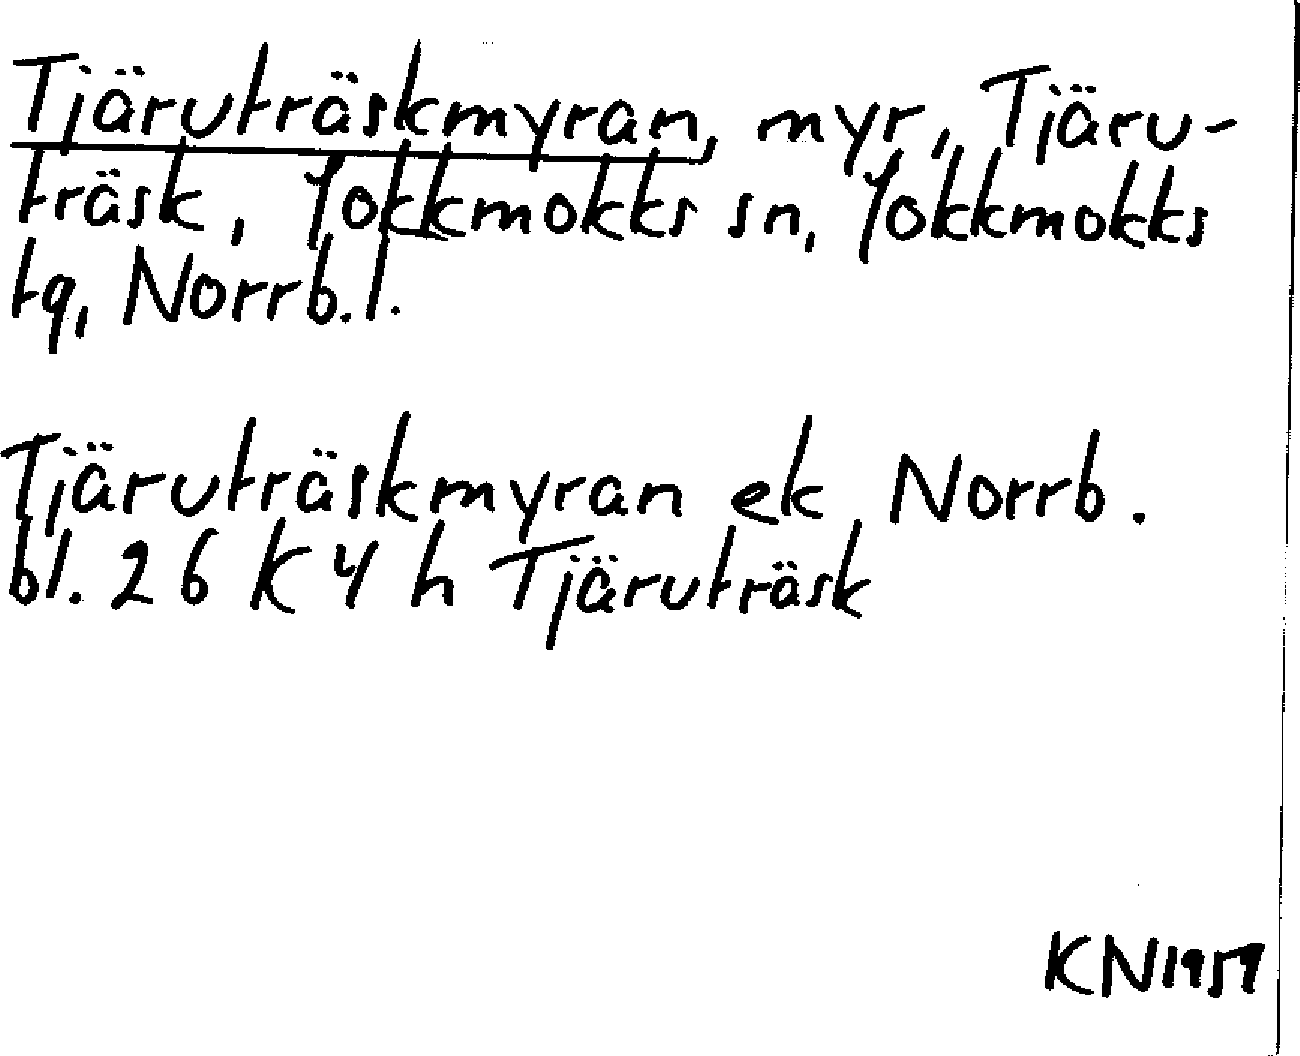 Tjäruträskmyran, myr, Tjäru-
träsk, Jokkmokks sn, Jokkmokks
tg, Norrb.l.
Tjäruträskmyran ek Norrb.
bl. 26 K 4 h Tjäruträsk
KN 1959